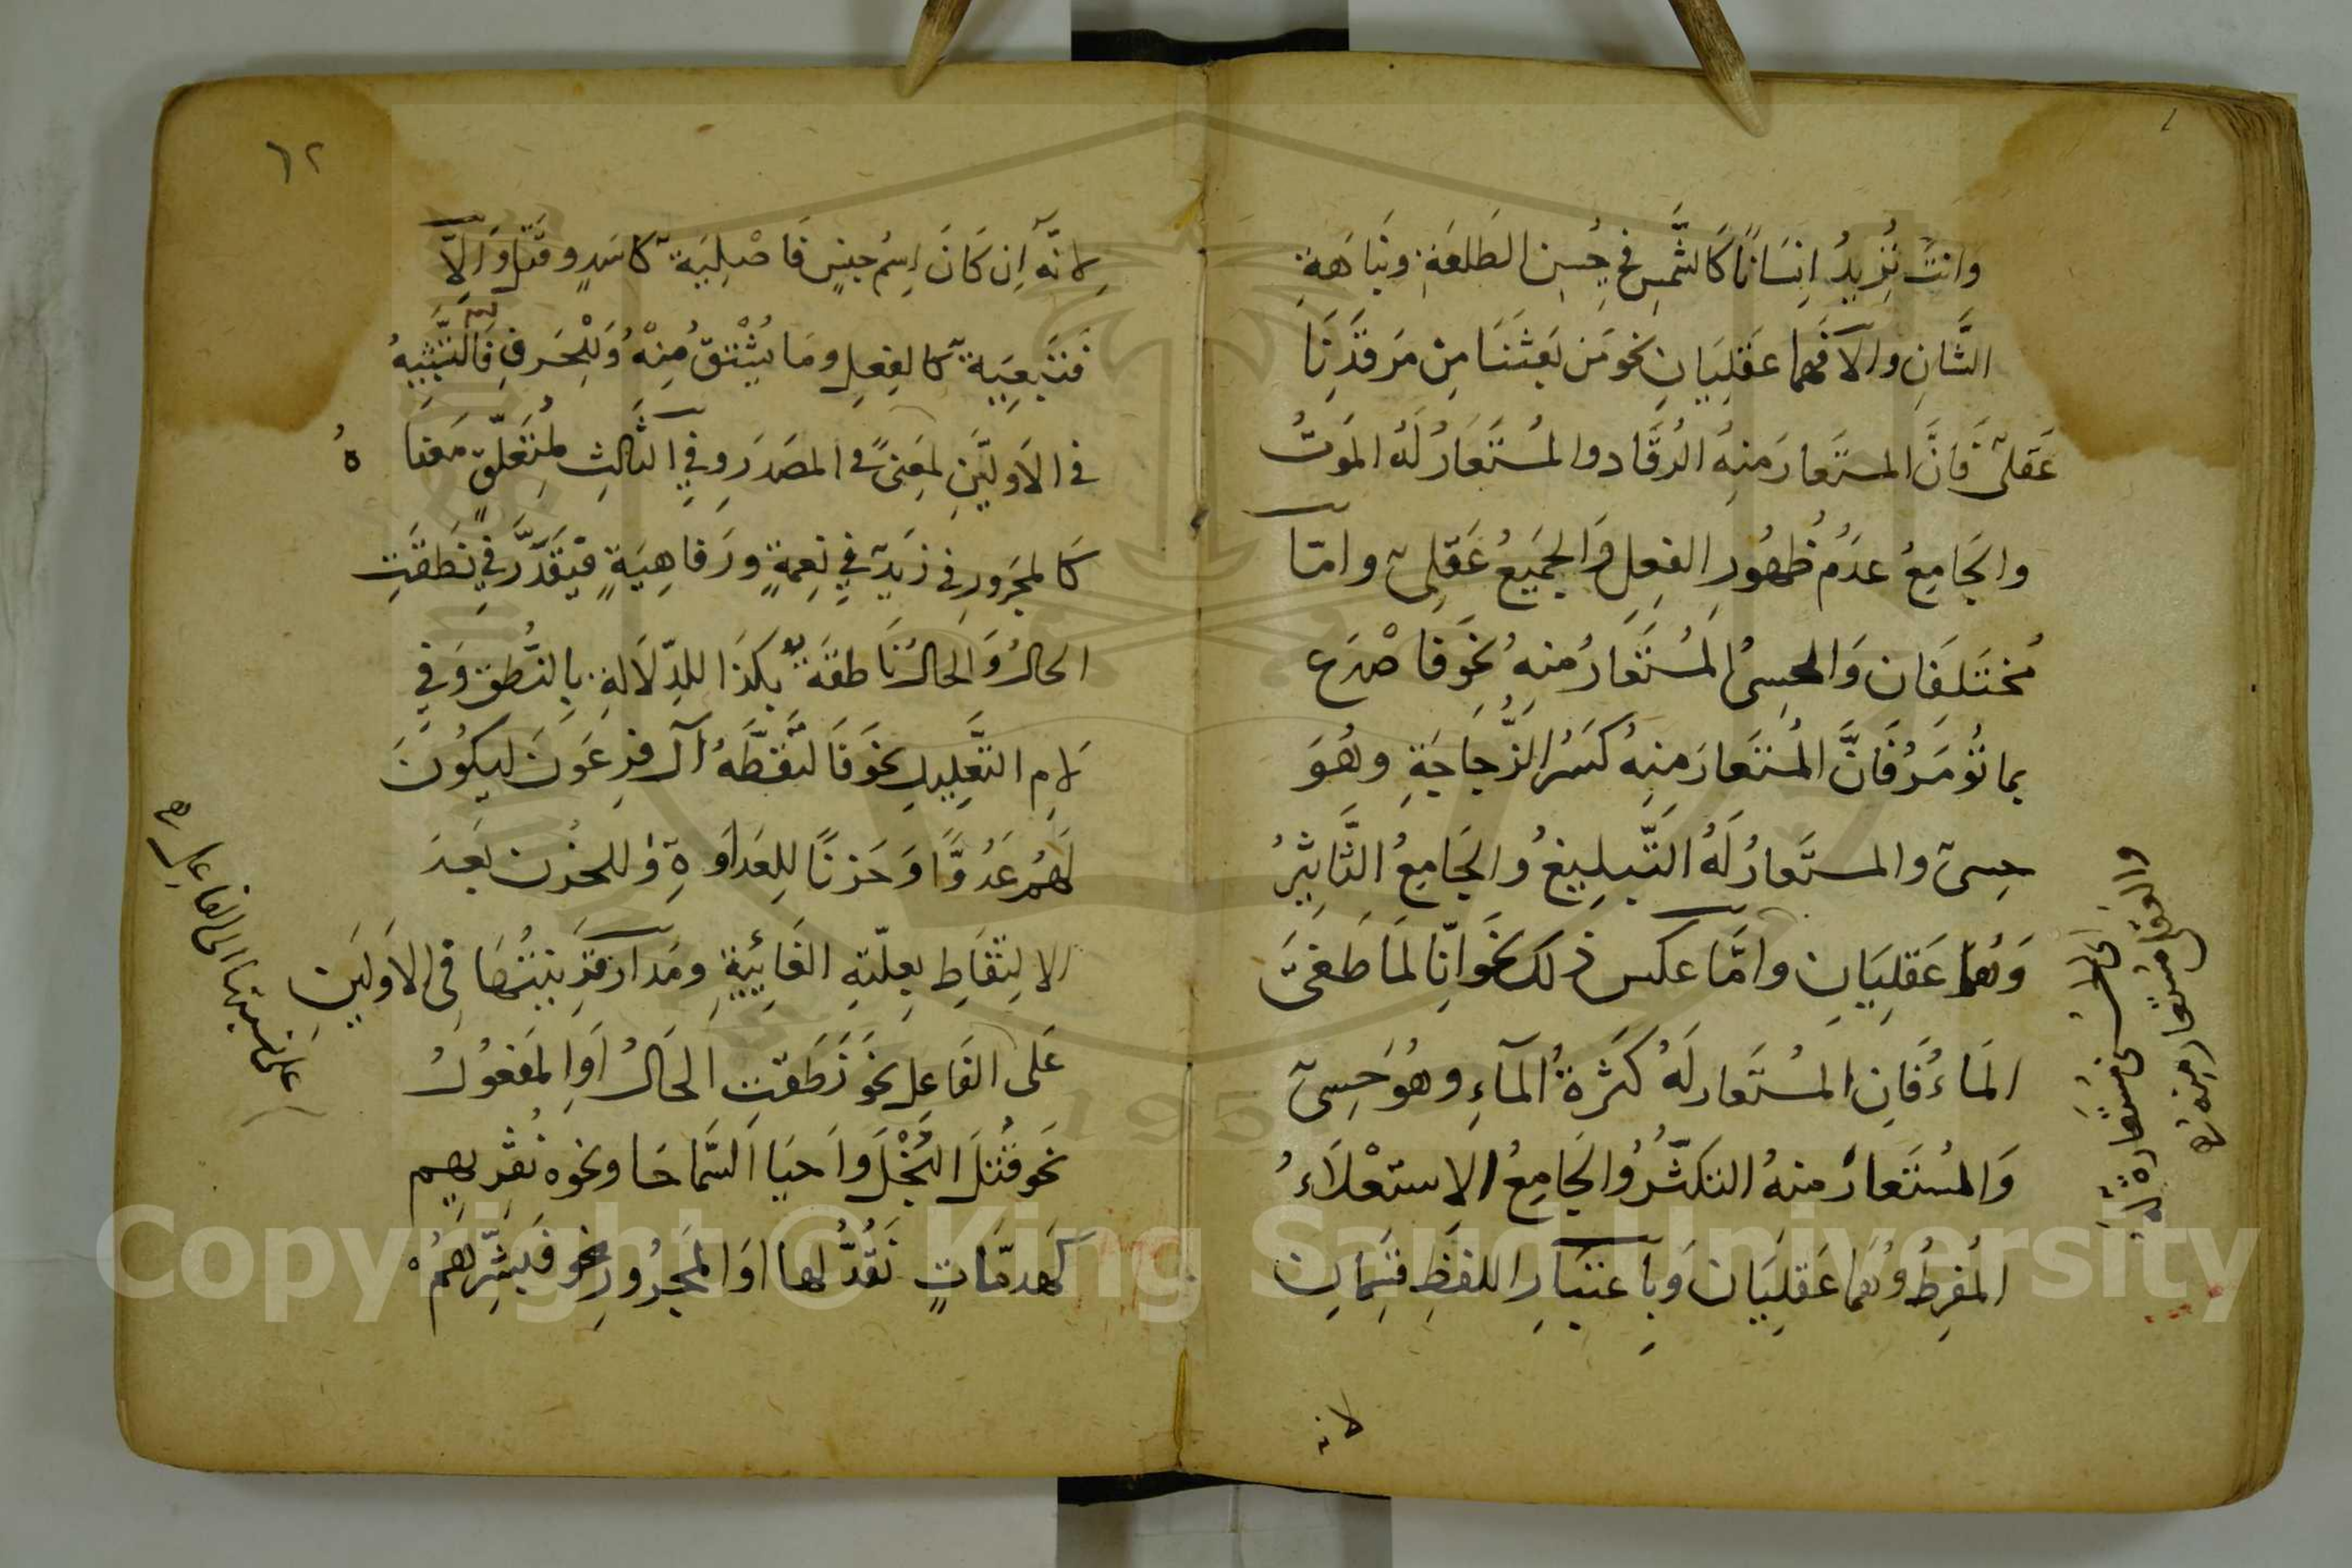 وانتَ تُرِيدُ اِنسَانًا كَالشَّمسِ فِي حُسنِ الطَلعَةِ ونَبَاهَةِ
الشَّانِ والا فَهما عَقلِيَانِ نحو مَن بَعَثَنَا مِن مَرقَدِنَا
عَقلىٌ فَانَّ المستَعارَ منِهُ الرُقَّاد والمُستَعَارُ لَهُ المَوتُ
والجَامِعُ عدَمُ ظُهُورِ الفِعلِ وَالجَمِيعُ عَقلِىٌ وامّا
مُختَلِفَان وَالحِسىُ المُستَعَارُ منِهُ نحَو فاصْدَع
بما تُومَرُ فَانَّ المُستَعارَ منِهُ كَسرُ الزُّجَاجَةِ وهُوَ
حِسىٌ والمستَعارُ لَهُ التَّبلِيغُ والجَامِعُ التَّاثِيرُ
وَهُما عَقلِيَانِ وامَّا عكس ذلكَ نحَو انّا لَمَا طَغىَ
المَاءُ فَانِ المُستَعَار لَهُ كَثرةُ المَآءِ وهُوَ حِسىٌ
وَالمُستَعارُ منهُ التكَثُّرُ والجَامِعُ الاِستعْلَاءُ
المُفرِطُ وهُما عَقلِيَان وَبِاعتبَارِ اللفظِ قسِمَانِ
والعقل مستعار منه
لانه
٦٢
لِانّهَ اِن كَانَ اِسمُ جنِسٍ فَاصْلِيَةٌ كاسَدٍ وقَتلٍ وَاِلّا
فَتَبعِيَةٌ كالفِعلِ ومَا يُشْتقُّ مُنِهْ وَلِلْحَرفِ فَالتَّشبِيهُ
فى الاَولَيَّنِ لمِعَنىً فى المصَدَرَ وفِي الثَالِثِ لمُتعَلّقِ مَعنا هُ
كَالمجَرورِ فى زَيدٌ فِي نِعمَةٍ ورَفاهِيَةٍ فيُقَدَّرُ فِي نَطَقَتِ
الحالُ وَالحالُ نَاطقَةٌ بكذَا للدّلَالةِ بِالنُّطقِ وَفِي
لَامِ التَّعلِيلِ نحَو فَالتَقَطَّهُ آلَ فرِعَونَ ليكُونَ
لَهُم عَدُوًّا وَحَزنًا لِلعَداَوةِ وللحُزن بَعدَ
الالِتقَاطِ بِعلّتهِ الغَائِيةِ ومَدارُ قرِينَتُهَا فِى الاَولَينِ
عَلى الفَاعِلِ نحَو نَطَقَتِ الحَالُ اَوِ المَفعُولُ
نَحو قُتلَ البُخْلَ واَحيَا السَّماحَا ونحوه نُقرِيهِم
لهَذمِيّاتٍ نَقُدُّ لها اوَ المَجرُورِ نحو فَبَشِّرهُم
على نسبتها الى الفاعل صح